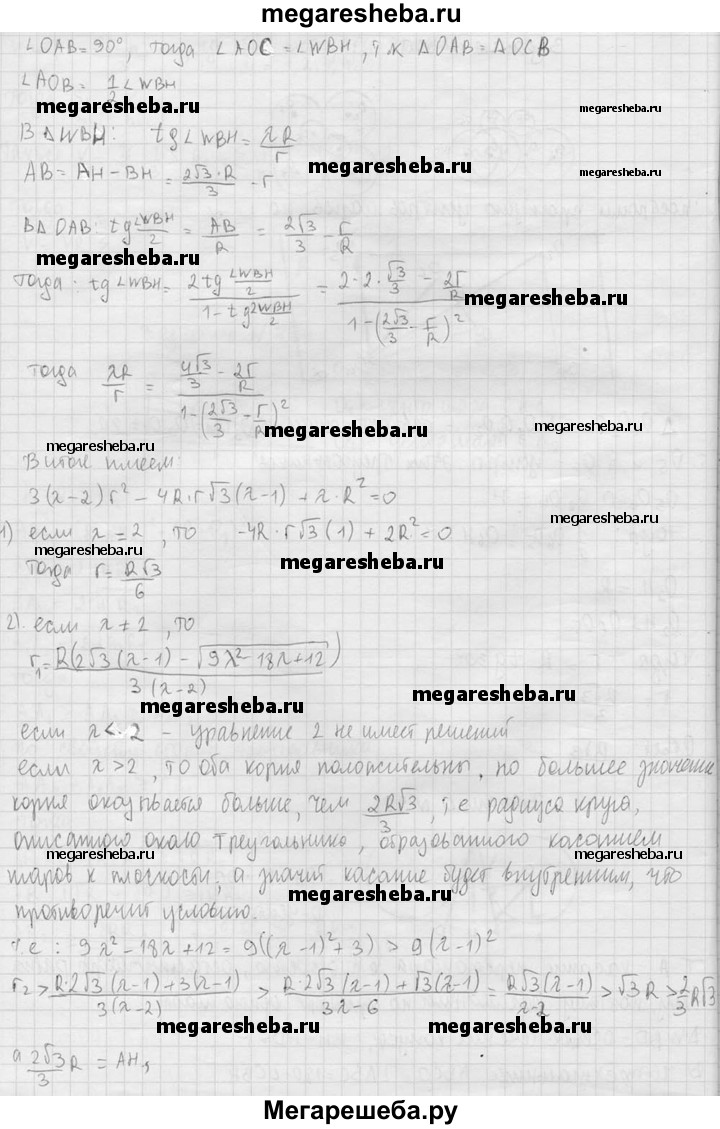 megaresheba.ru
∠OAB = 90°, тогда ∠AOC = ∠WBH, т к ΔOAB = ΔOCB
∠AOB = 1/2 ∠WBH
megaresheba.ru megaresheba.ru megaresheba.ru
В ΔWBH: tg∠WBH = λR/r
megaresheba.ru
AB = AH - BH = 2√3·R/3 - r
В Δ OAB: tg ∠WBH/2 = AB/R = 2√3/3 - r/R
megaresheba.ru megaresheba.ru
Тогда: tg∠WBH = 2tg ∠WBH/2 / 1 - tg² WBH/2 = 2·2·√3/3 - 2r/R / 1-(2√3/3 - r/R)²
megaresheba.ru
тогда λR/r = 4√3/3 - 2r/R / 1-(2√3/3 - r/R)²
megaresheba.ru megaresheba.ru
megaresheba.ru
В итоге имеем:
3(λ-2)r² - 4R·r√3(λ-1) + λ·R² = 0
1) если λ = 2, то -4R·r√3(1) + 2R² = 0
megaresheba.ru megaresheba.ru megaresheba.ru
Тогда r = R√3/6
2). если λ ≠ 2, то
r₁ = R(2√3(λ-1) - √9λ²-18λ+12) / 3(λ-2)
megaresheba.ru megaresheba.ru
если λ < 2 - уравнение 2 не имеет решений
если λ > 2, то оба корня положительны, но большее значение
корня оказывается больше, чем 2R√3/3, т е радиуса круга,
описанного около треугольника, образованного касанием
megaresheba.ru
шаров к плоскости, а значит касание будет внутренним, что
megaresheba.ru
противоречит условию.
т.е: 9λ²-18λ+12 = 9((λ-1)²+3) > 9(λ-1)²
r₂ > R·2√3(λ-1)+3(λ-1) / 3(λ-2) > R·2√3(λ-1)+√3(λ-1) / 3λ-6 = R√3(λ-1) / λ-2 > √3R > 2/3 R√3
megaresheba.ru megaresheba.ru
а 2√3/3 R = AH,
Мегарешеба.ру